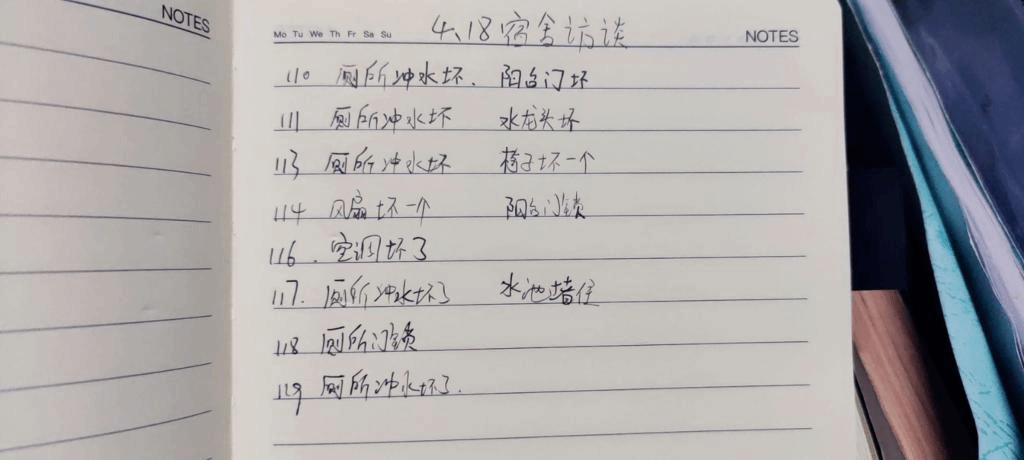 NOTES
Mo Tu We Th Fr Sa Su 4.18宿舍访谈 NOTES
110 厕所冲水坏. 阳台门坏
111 厕所冲水坏 水龙头坏
113 厕所冲水坏 椅子坏一个
114 风扇坏一个 阳台门锁
116. 空调坏了
117. 厕所冲水坏了 水池堵住
118 厕所门锁
119 厕所冲水坏了.